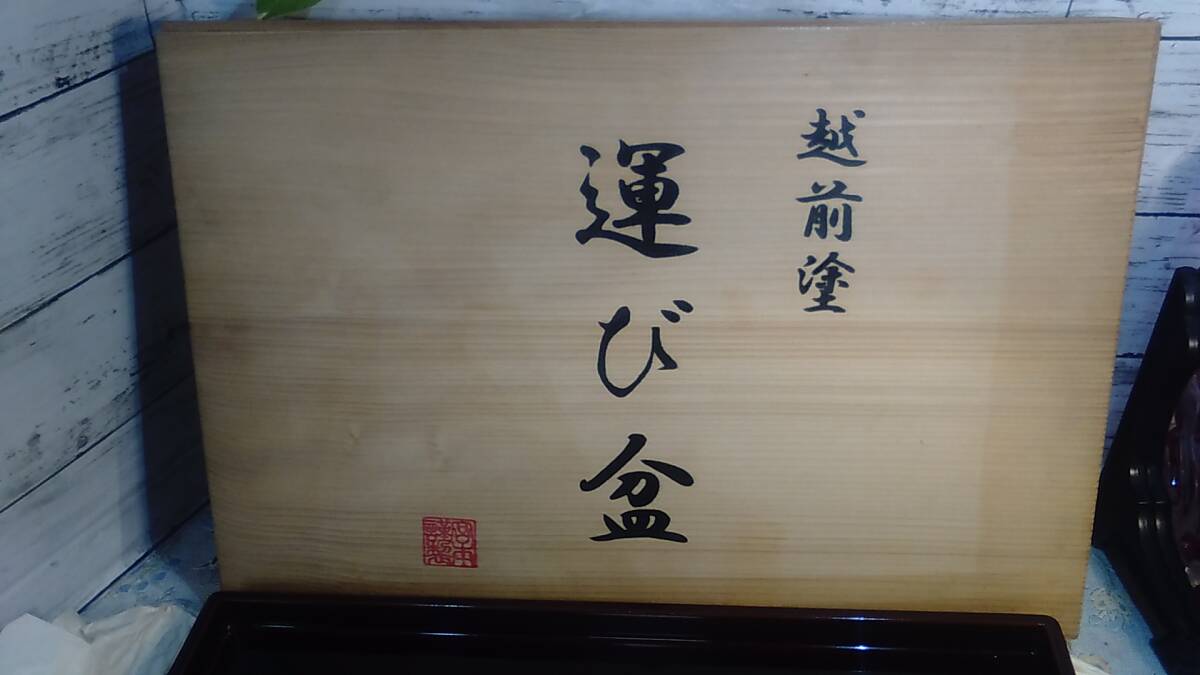 越前塗
運び盆